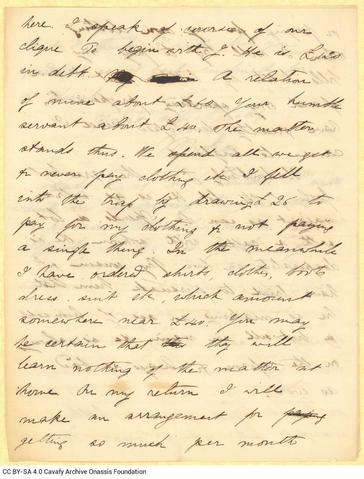 here I speak of ourselves of our
clique To begin with J. He is £
in debt A relation
of mine about £ Your humble
servant about £40. The matter
stands thus. We spend all we get
& never pay clothing etc I fell
into the trap by drawing £25 to
pay for my clothing & not paying
a single thing. In the meanwhile
I have ordered shirts, clothes, boots
dress. suit etc, which amount
somewhere near £40. You may
be certain that they will
learn nothing of the matter at
home On my return I will
make an arrangement for
getting so much per month
CC BY-SA 4.0 Cavafy Archive Onassis Foundation